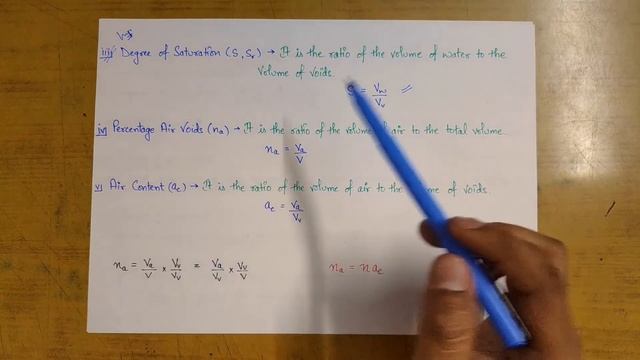 iii) Degree of Saturation (S, Sr) → It is the ratio of the volume of water to the
volume of voids.
S = Vw/Vv
iv) Percentage Air Voids (na) → It is the ratio of the volume air to the total volume.
na = Va/V
v) Air Content (ac) → It is the ratio of the volume of air to the of voids.
ac = Va/Vv
na = Va/V x Vv/Vv = Va/Vv x Vv/V
na = n ac